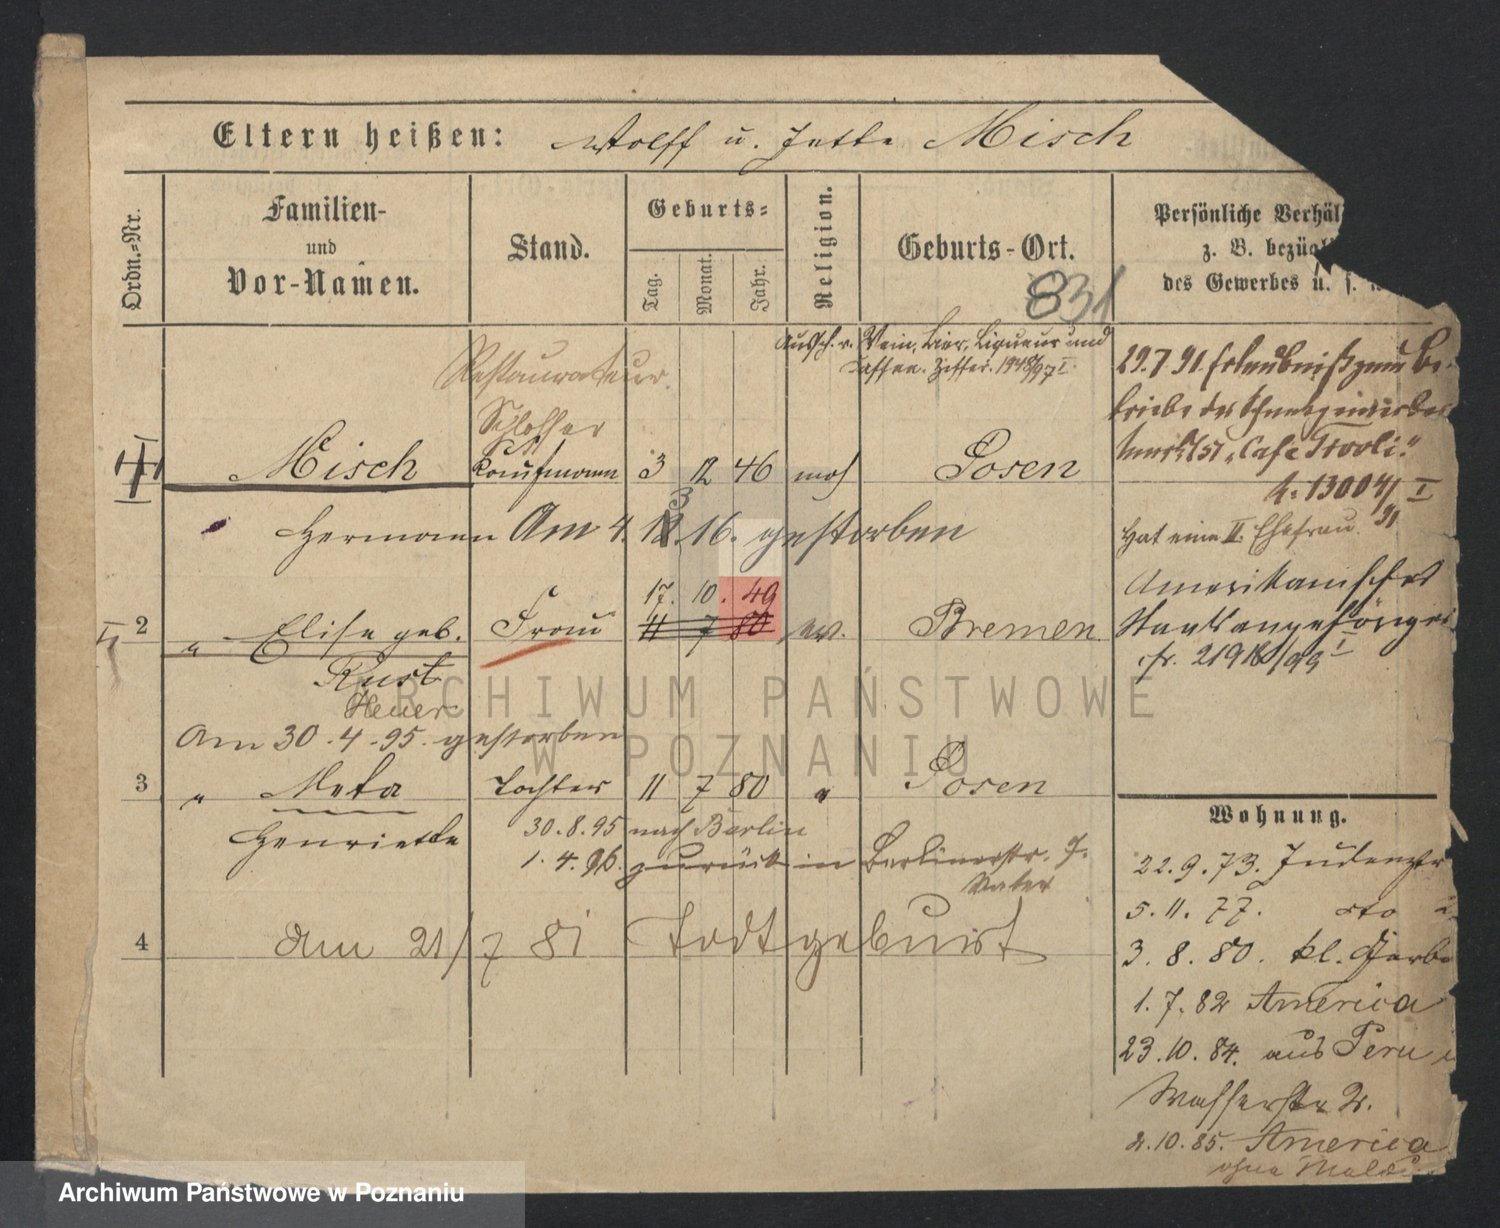 Eltern heißen: Wolff u. Jette Misch
Ordn.-Nr.
Familien-
und
Vor-Namen.
Stand.
Geburts-
Tag.
Monat.
Jahr.
Religion.
Geburts-Ort.
831
Persönliche Verhäl
z. B. bezügl
des Gewerbes u. s.
Aussch. v. Wein, Bier, Liqueur und
Caffee. Ziffer. 1948/97 I.
Restaurateur
Schlosser
1 Misch Kaufmann 3 12 46 mos Posen
Hermann Am 4. 3. 16. gestorben
17. 10. 49
2 " Elise geb. Frau 11 7 80 ev. Bremen
Rust
Heuer
Am 30.4.95. gestorben
3 " Meta Tochter 11 7 80 " Posen
Henriette 30.8.95 nach Berlin
1.4.96. zurück in Berlinerstr. 7.
Vater
4 Am 21/7 81 Todtgeburt
29.7.91. Erlaubniß zum Be-
triebe der
"Café Tivoli"
1300 I
91
Hat eine II. Ehefrau
Amerikanischer
Staatsangehöriger
cfr. 219 /99 I
Wohnung.
22.9.73. Judenstr
5.11.77. dto
3.8.80. kl. Gerbe
1.7.82 America
23.10.84. aus Peru
Wasserstr 2.
2.10.85. America
ohne Meld
ARCHIWUM PAŃSTWOWE
W POZNANIU
Archiwum Państwowe w Poznaniu